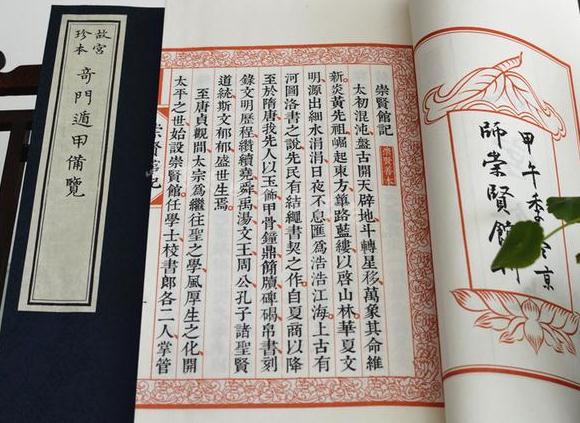 故宮
珍本
奇門遁甲備覽
甲午季
京
師崇賢館
崇賢館記 崇賢善本
太初混沌盤古開天辟地斗轉星移萬象其命維
新炎黃先祖崛起東方篳路藍縷以啓山林華夏文
明源出細水涓涓日夜不息匯爲浩浩江海上古有
河圖洛書之説先民有結繩書契之作自夏商以降
至於隋唐我先人以玉飾甲骨鐘鼎簡牘碑碣帛書刻
錄文明歷程纘續堯舜禹湯文王周公孔子諸聖賢
道統斯文郁郁盛世生焉
至唐貞觀間太宗爲繼往聖之學風厚生之化開
太平之世始設崇賢館任學士校書郎各二人掌管
崇賢館記